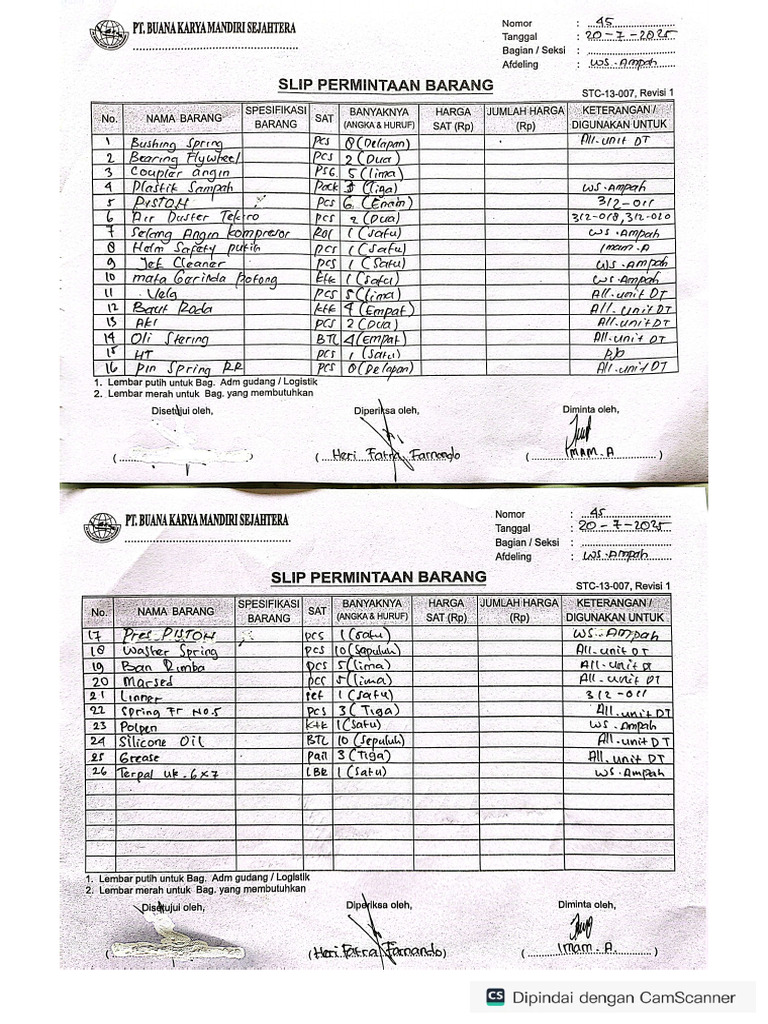 PT. BUANA KARYA MANDIRI SEJAHTERA
Nomor : 45
Tanggal : 20-7-2025
Bagian / Seksi :
Afdeling : WS. Ampah
SLIP PERMINTAAN BARANG
STC-13-007, Revisi 1
No. NAMA BARANG SPESIFIKASI BARANG SAT BANYAKNYA (ANGKA & HURUF) HARGA SAT (Rp) JUMLAH HARGA (Rp) KETERANGAN / DIGUNAKAN UNTUK
1 Bushing Spring pcs 8 (Delapan) All-unit DT
2 Bearing Flywheel pcs 2 (Dua)
3 Coupler angin PSG. 5 (lima)
4 Plastik Sampah Pack 3 (Tiga) WS-Ampah
5 PISTOH pcs 6 (Enam) 312-011
6 Air Duster Tekiro pcs 2 (Dua) 312-018, 312-020
7 Selang Angin kompresor Rol 1 (Satu) WS. Ampah
8 Helm Safety putih pcs 1 (Satu) Imam. A
9 Jet Cleaner pcs 1 (Satu) WS. Ampah
10 mata Gerinda potong ktk 1 (Satu) WS. Ampah
11 Velg pcs 5 (lima) All-unit DT
12 Baut Roda ktk 4 (Empat) All-unit DT
13 AKI pcs 2 (Dua) All-unit DT
14 Oli Stering BTL 4 (Empat) All-unit DT
15 HT pcs 1 (Satu)
16 Pin Spring RR pcs 8 (Delapan) All-unit DT
1. Lembar putih untuk Bag. Adm gudang / Logistik
2. Lembar merah untuk Bag. yang membutuhkan
Disetujui oleh, Diperiksa oleh, Diminta oleh,
(Heri Fatra Farnando) (Imam. A)
PT. BUANA KARYA MANDIRI SEJAHTERA
Nomor : 45
Tanggal : 20-7-2025
Bagian / Seksi :
Afdeling : WS. Ampah
SLIP PERMINTAAN BARANG
STC-13-007, Revisi 1
No. NAMA BARANG SPESIFIKASI BARANG SAT BANYAKNYA (ANGKA & HURUF) HARGA SAT (Rp) JUMLAH HARGA (Rp) KETERANGAN / DIGUNAKAN UNTUK
17 Pres PISTOH pcs 1 (satu) WS. Ampah
18 Waster Spring pcs 10 (Sepuluh) All-unit DT
19 Ban Rimba pcs 5 (lima) All-unit DT
20 Marsed pcs 5 (lima) All-unit DT
21 Linner set 1 (Satu) 312-011
22 Spring Fr No.5 pcs 3 (Tiga) All-unit DT
23 Polpen Ktk 1 (Satu) WS. Ampah
24 Silicone Oil BTL 10 (Sepuluh) All-unit DT
25 Grease Pail 3 (Tiga) All-unit DT
26 Terpal uk. 6x7 LBR 1 (Satu) WS. Ampah
1. Lembar putih untuk Bag. Adm gudang / Logistik
2. Lembar merah untuk Bag. yang membutuhkan
Disetujui oleh, Diperiksa oleh, Diminta oleh,
(Heri Fatra Farnando) (Imam. A.)
CS Dipindai dengan CamScanner